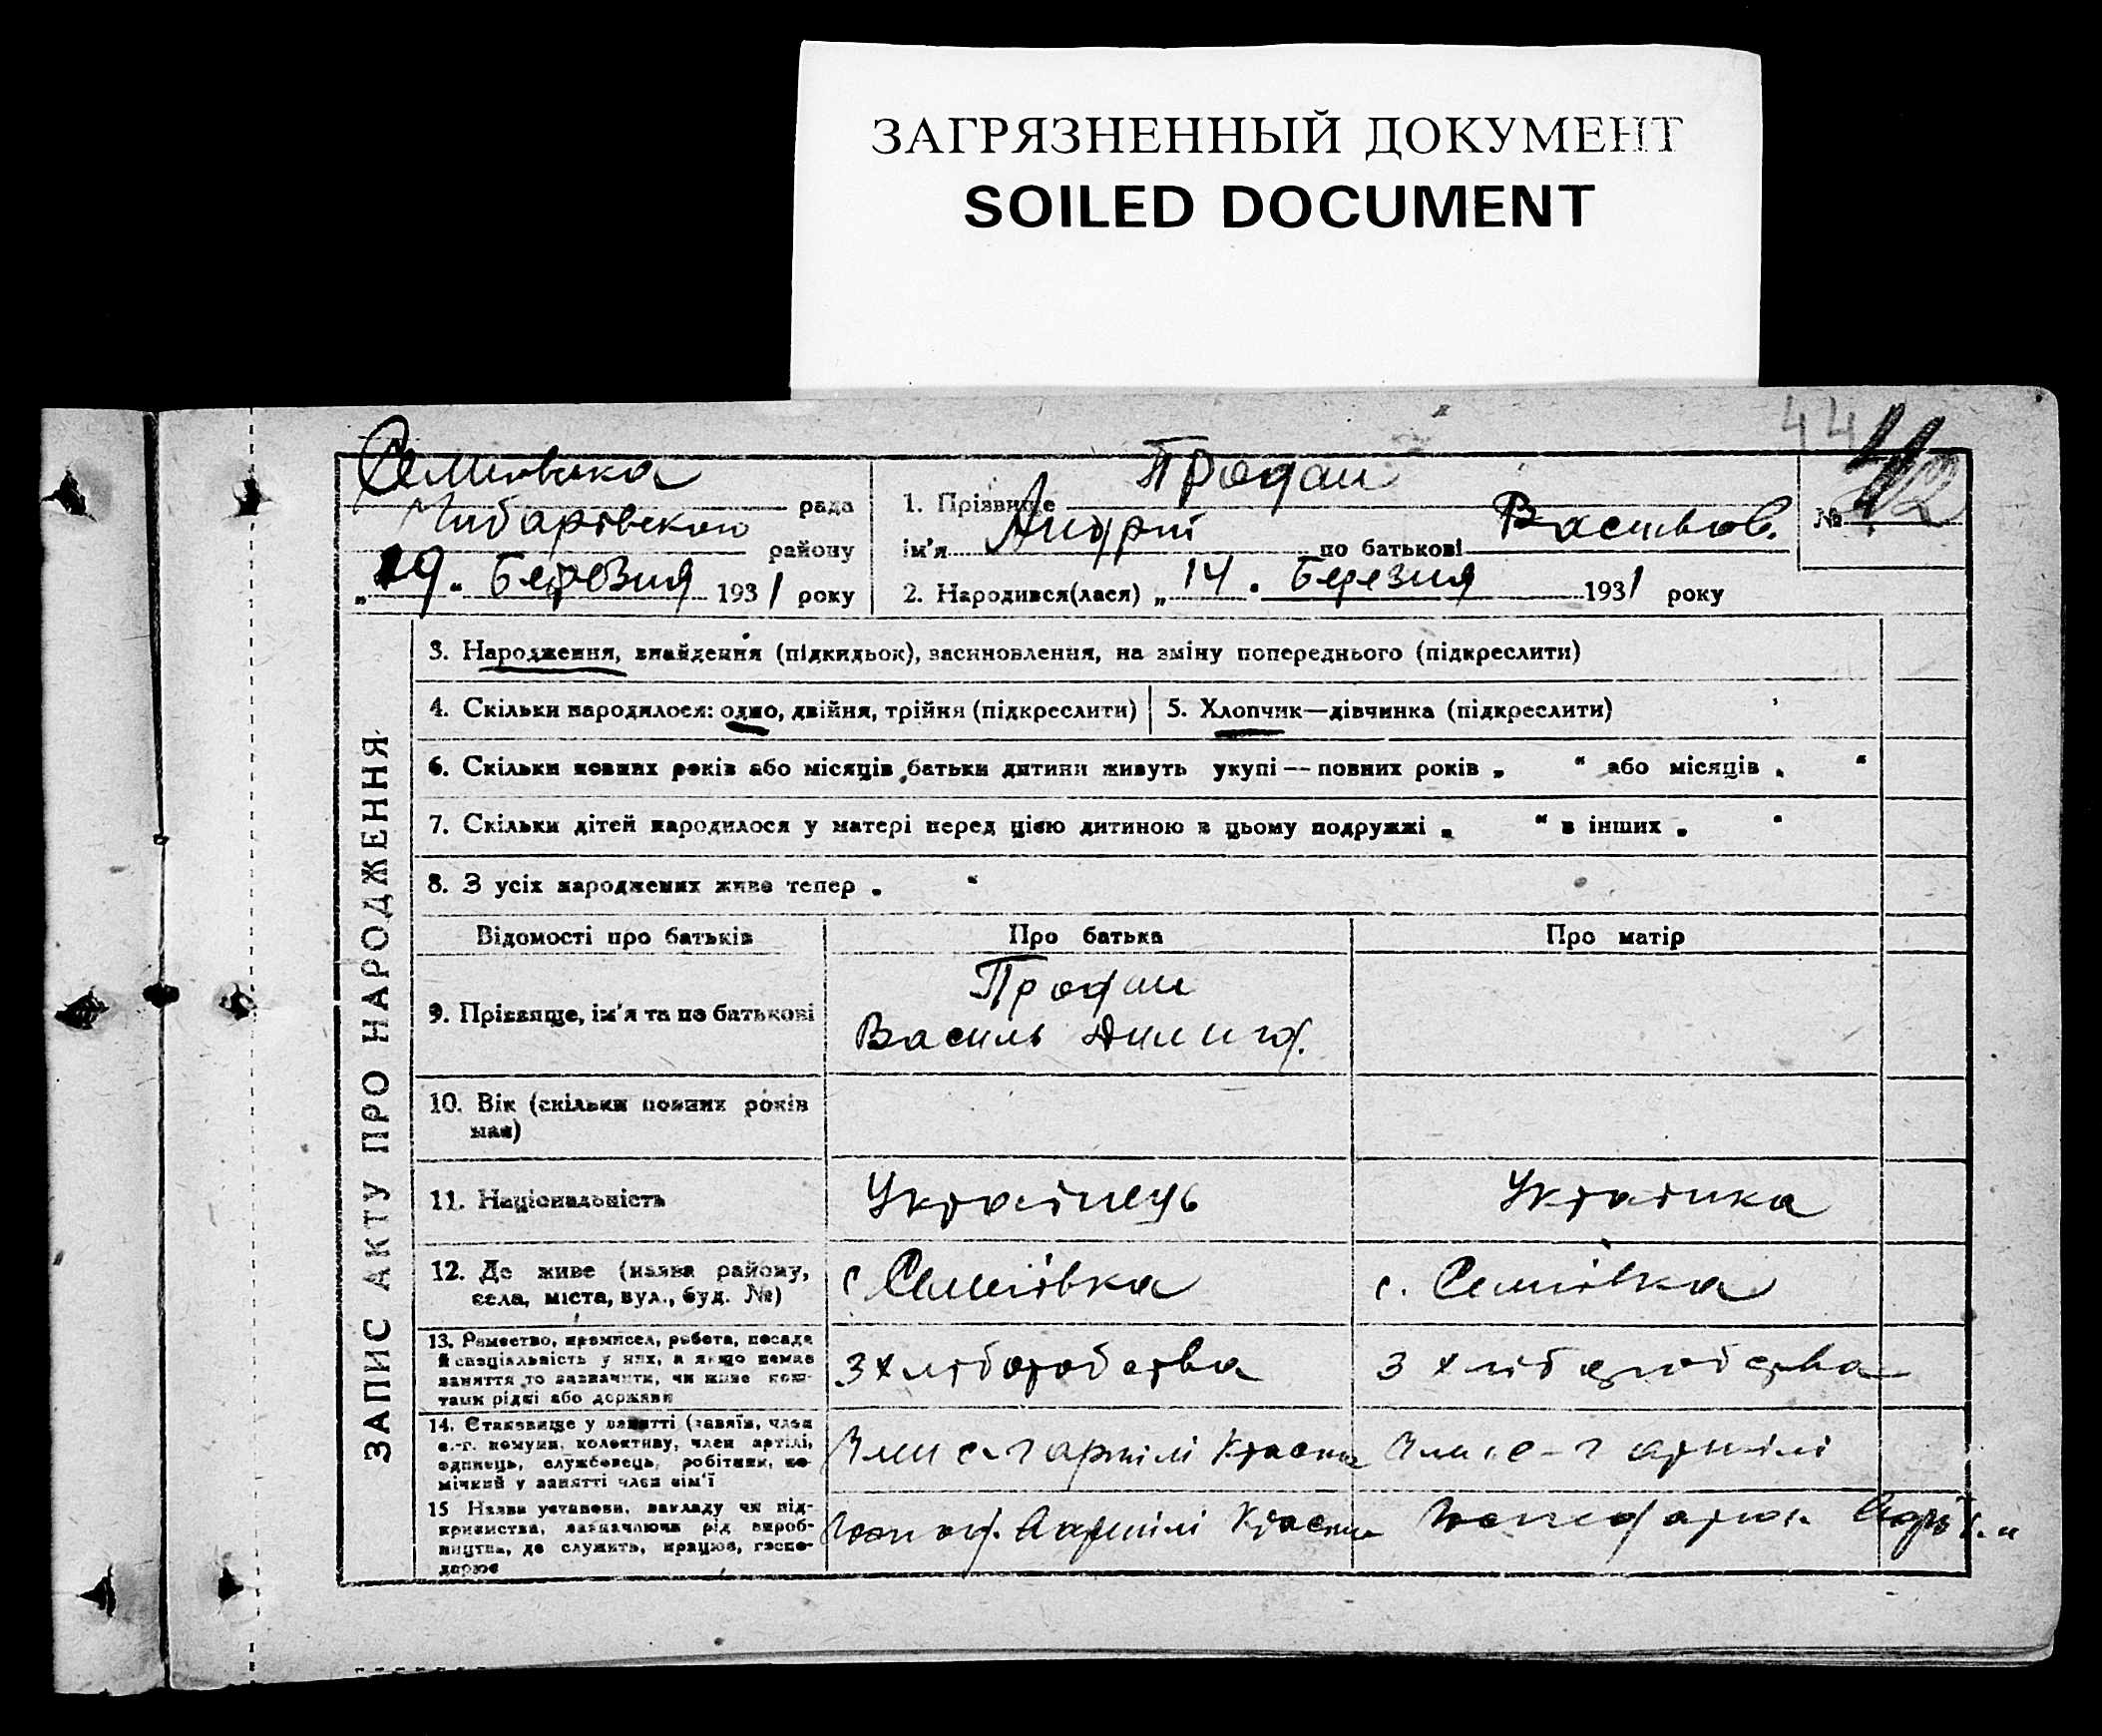 ЗАГРЯЗНЕННЫЙ ДОКУМЕНТ
SOILED DOCUMENT
44
42
Семиівська рада
району
"19" Березня 1931 року
1. Прізвище Продан
ім'я Андрій по батькові Васильов.
№
2. Народився(лася) "14" Березня 1931 року
ЗАПИС АКТУ ПРО НАРОДЖЕННЯ
3. Народження, знайдення (підкидьок), засиновлення, на зміну попереднього (підкреслити)
4. Скільки народилося: одно, двійня, трійня (підкреслити)
5. Хлопчик—дівчинка (підкреслити)
6. Скільки повних років або місяців батьки дитини живуть укупі — повних років „ “ або місяців „ “
7. Скільки дітей народилося у матері перед цією дитиною в цьому подружжі „ “ в інших „ “
8. З усіх народжених живе тепер „ “
Відомості про батьків
Про батька
Про матір
9. Прізвище, ім'я та по батькові
Продан
Василь
10. Вік (скільки повних років
має)
11. Національність
Українець
Українка
12. Де живе (назва району,
села, міста, вул., буд. №)
с Семиівка
с. Семиівка
13. Ремество, промисел, робота, посада
й спеціальність у них, а якщо немає
заняття то зазначити, чи живе кош-
тами рідні або держави
З хліборобства
З хліборобства
14. Становище у занятті (хазяїн, член
с.-г. комуни, колективу, член артілі,
одинець, службовець, робітник, по-
мічний у занятті член сім'ї
Член с-г артілі
Член с-г артілі
15 Назва установи, закладу чи під-
приємства, зазначаючи рід вироб-
ництва, де служить, працює, госпо-
дарює